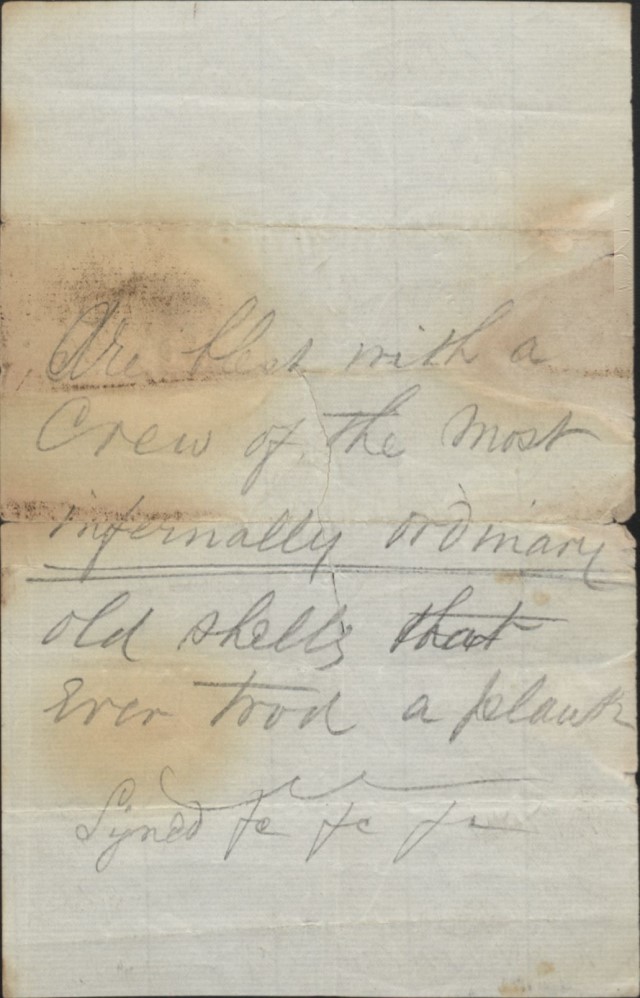 Are blest with a
Crew of the most
infernally ordinary
old shells that
Ever trod a plank
Syned &c &c &c